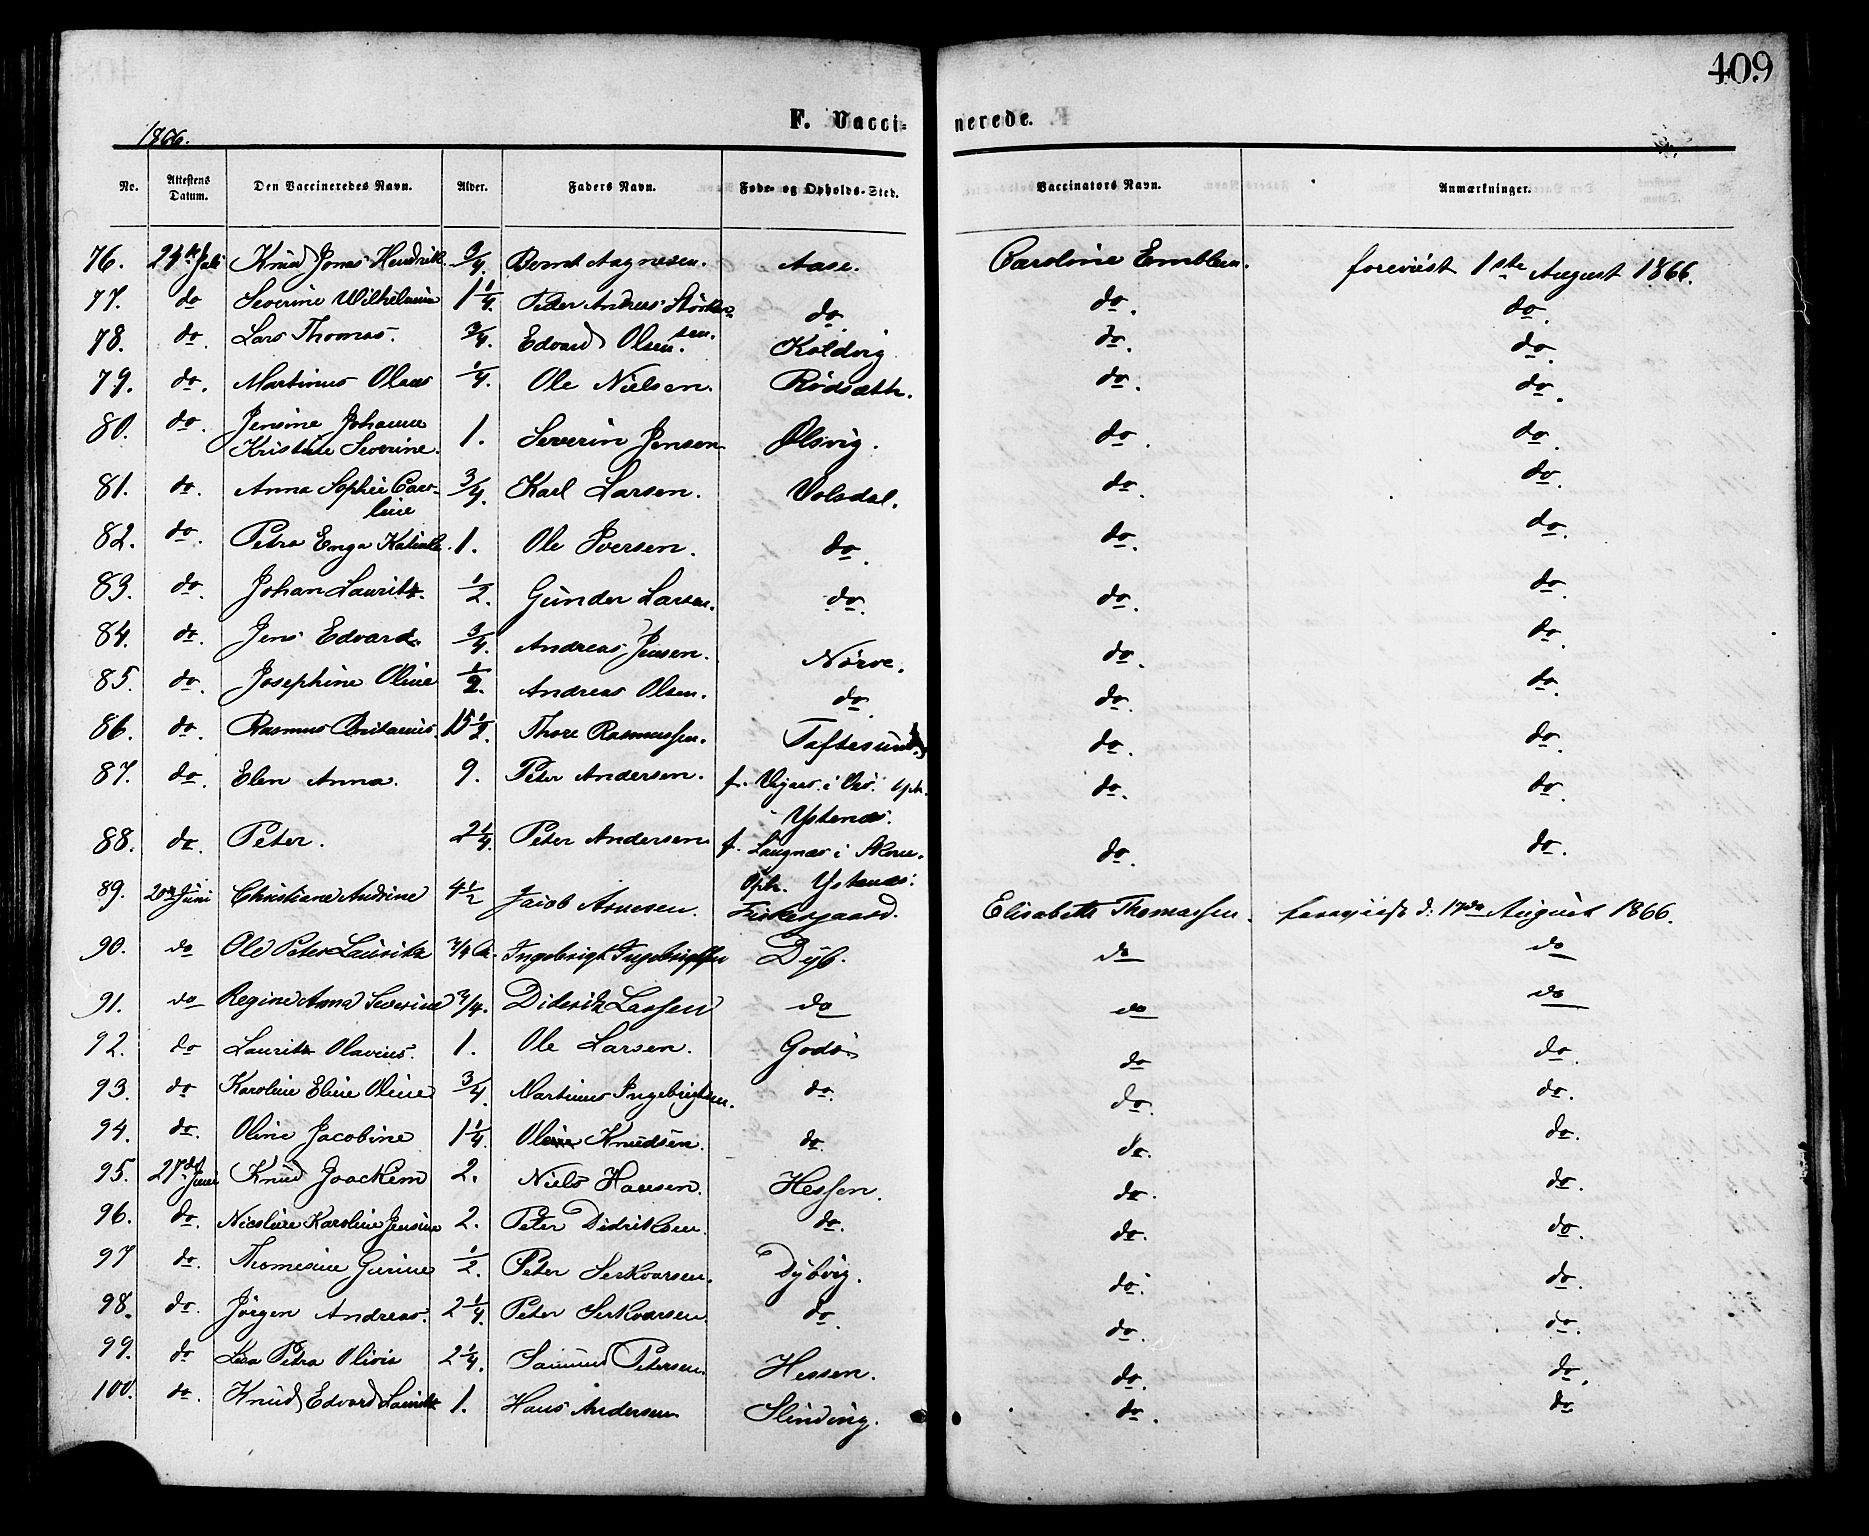 409
F. Vacci- nerede.
1866.
No. Attestens Datum. Den Vaccineredes Navn. Alder. Faders Navn. Føde- og Opholds-Sted. Vaccinators Navn. Anmærkninger.
76. 24de Juli Knud Jonas Hendrik 3/4. Bernt Aagnesen. Aase. Caroline Emblem. foreviist 1ste August 1866.
77. do Severine Wilhelmine 1 1/4. Peder Andreas Störkersen. do. do. do.
78. do. Lars Thomas. 3/4. Edvard Olsen. Kolvig do. do.
79. do. Martinus Olaus 1/4. Ole Nielsen. Rödsæth. do. do.
80. do. Jensine Johanne
Kristine Severine. 1. Severin Jensen Ølsvig. do. do.
81. do. Anna Sophie Caro-
line 3/4. Karl Larsen. Volsdal. do. do.
82. do. Petra Enga 1. Ole Iversen. do. do. do.
83. do. Johan Lauritz. 1/2. Gunder Larsen. do. do. do.
84. do. Jens Edvard. 3/4. Andreas Jensen. Nörve. do. do.
85. do. Josephine Oline 1/2. Andreas Olsen. do. do. do.
86. do. Rasmus 15 1/2. Thore Rasmussen. Taftesund. do. do.
87. do. Elen Anna. 9. Peter Andersen. f. i oph. do. do.
Ystenæs.
88. do. Peter. 2 1/4. Peter Andersen f. Langnæs i do. do.
oph. Ystenæs.
89. 20de Juni Christiane Andrine 4 1/2 Jacob Arnesen. Fiskergaard. Elisabeth Thomassen. foreviist d: 17de August 1866.
90. do Ole Peter Lauritz 3/4 Ingebrigt Ingebrigtsen Dyb. do do
91. do Regine Anna Severine 3/4. Diderik Larssen do do do
92. do Lauritz Olavius. 1. Ole Larsen. Godö. do do.
93. do Karoline Eline Oline 3/4. Martinus Ingebrigtsen. do. do. do.
94. do. Oline Jacobine 1 1/4. Ole Knudsen. do. do. do.
95. 27de Juni Knud Joachim 2. Niels Hansen. Hessen. do. do.
96. do. Nicoline Karoline Jensine 2. Peter Didriksen. do. do. do.
97 do. Thomesine Gurine 1/2. Peter Serkvarsen. Dybvig. do. do.
98. do. Jörgen Andreas. 2 1/4. Peter Serkvarsen. do. do. do.
99. do Petra Olivia 2 1/4. Samund Petersen. Hessen. do. do.
100. do. Knud Edvard Lauritz 1. Hans Andersen Slinding. do. do